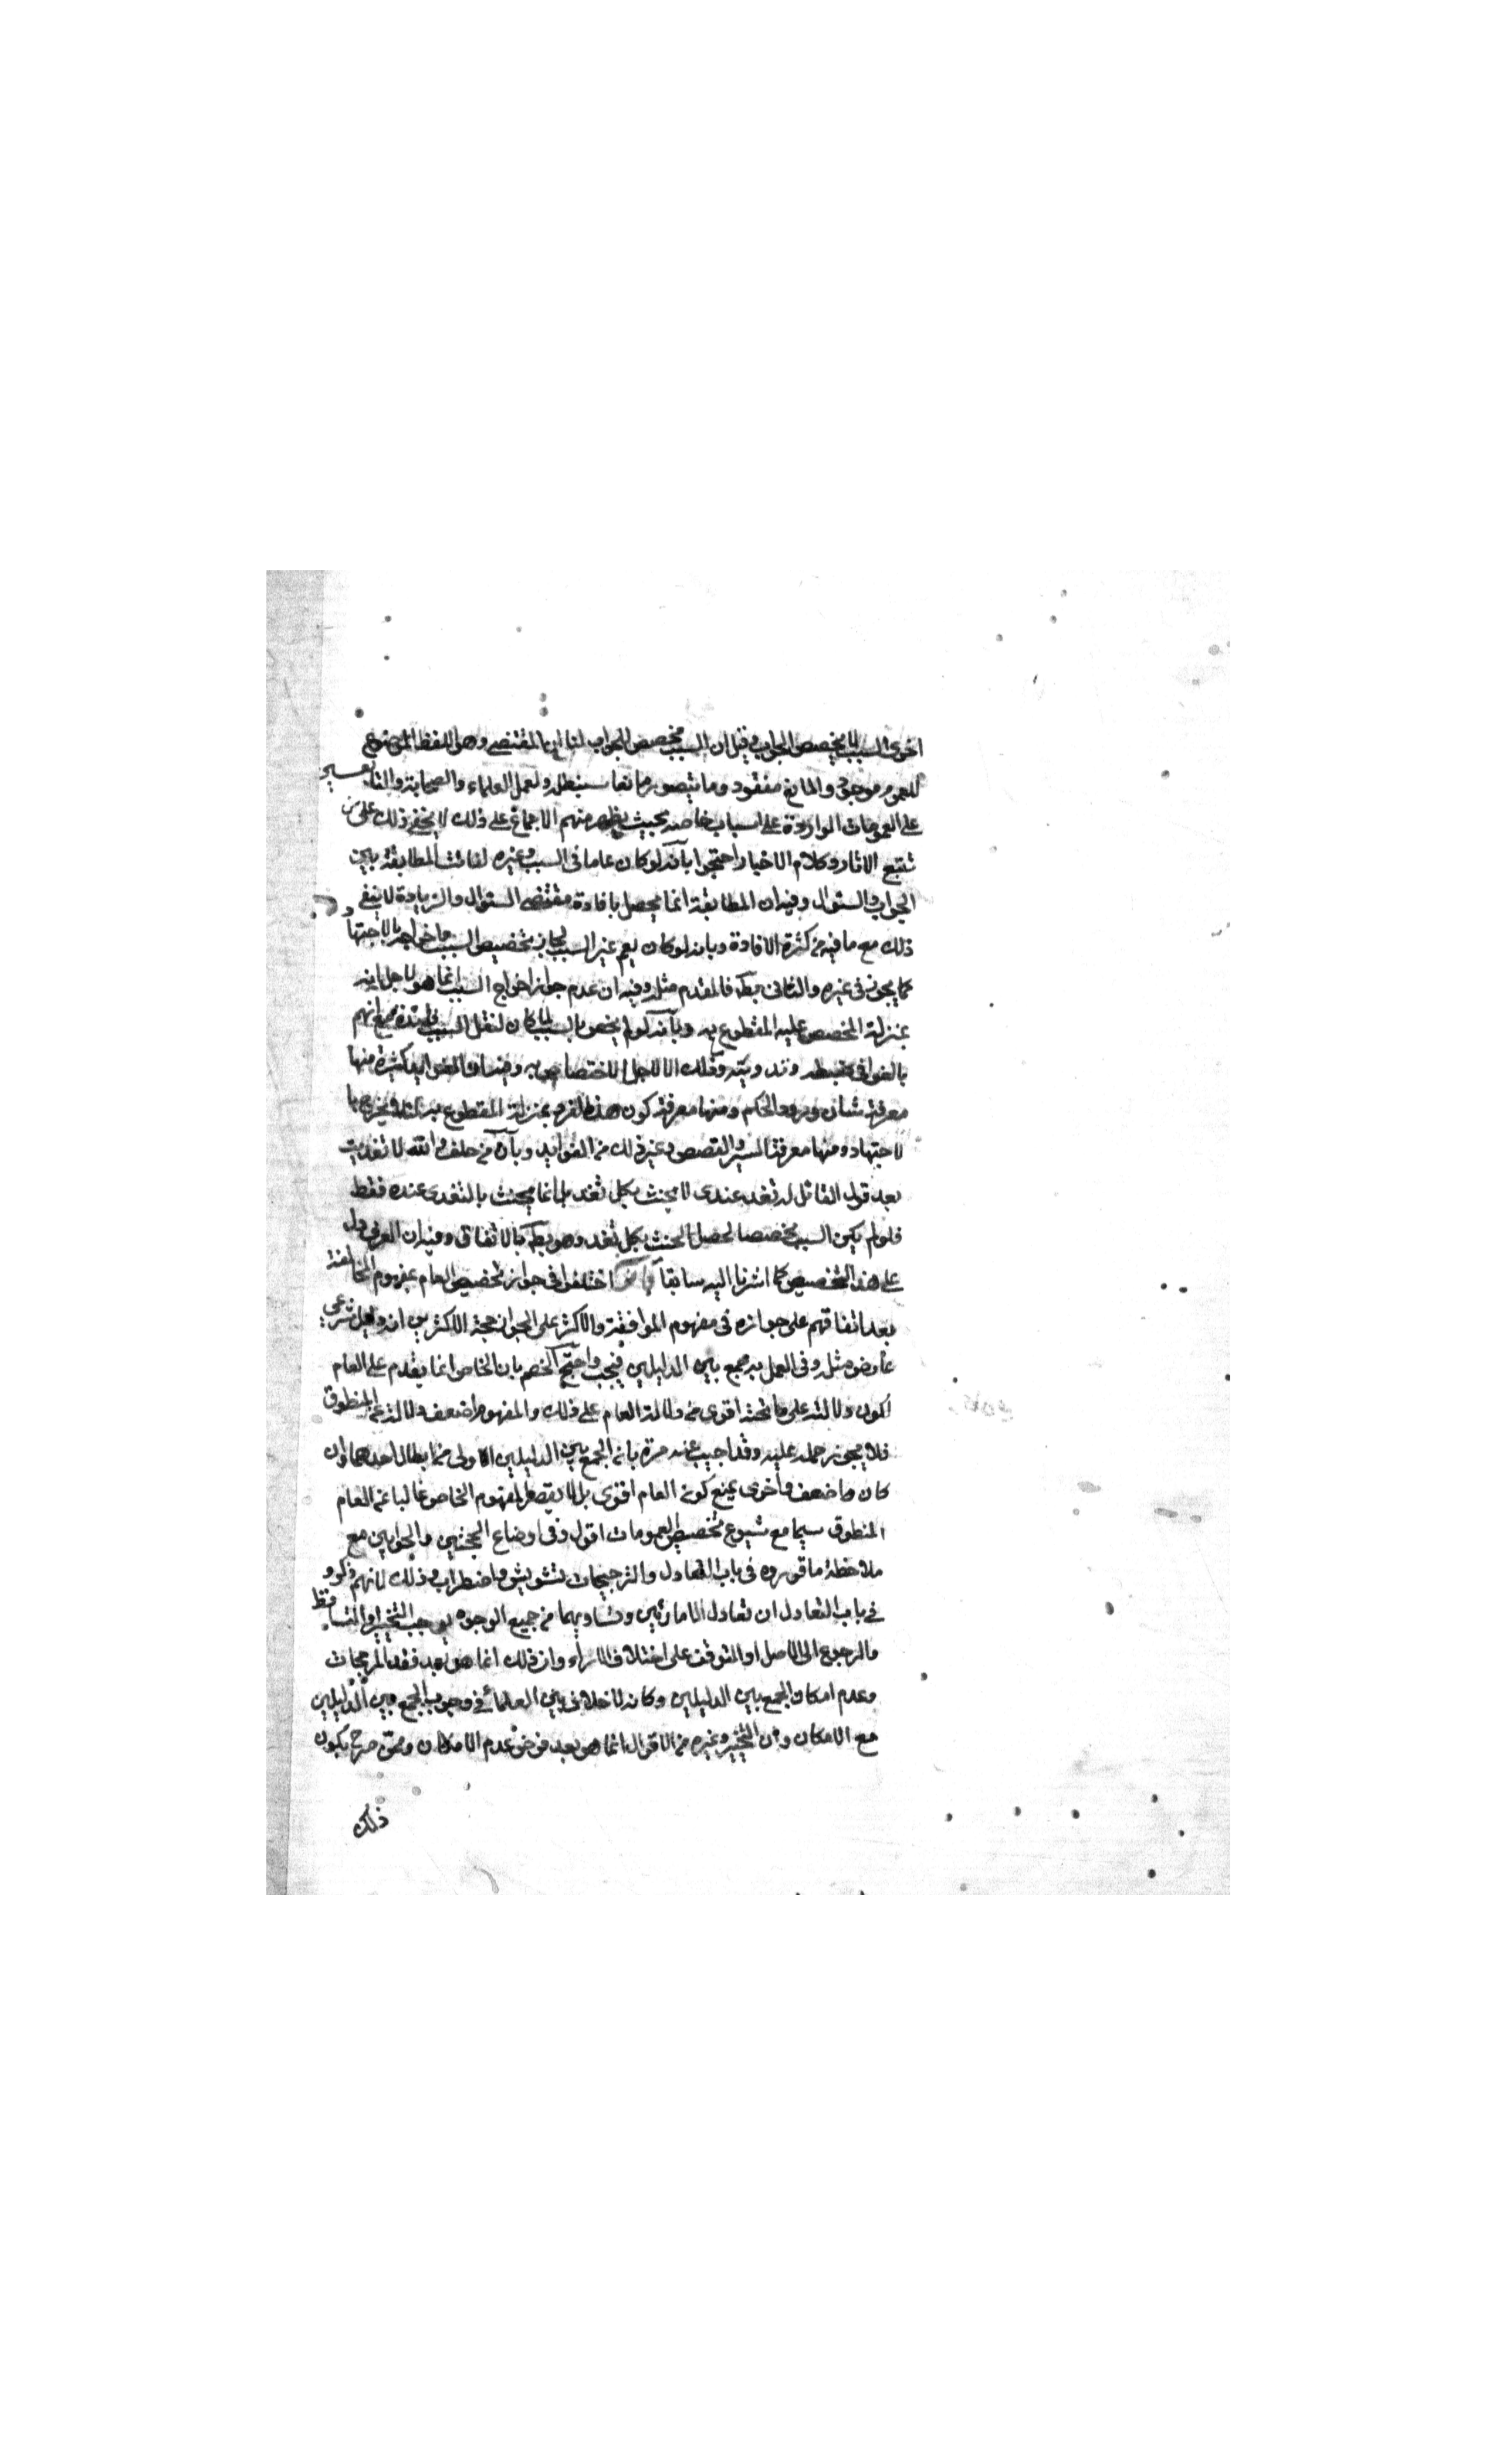 اخرى السبب لا يخصص الجواب وقيل ان السبب مخصص للجواب لنا ان المقتضى وهو اللفظ الموضوع
للعموم موجود والمانع مفقود وما يتصور مانعا سنبطله ولعمل العلماء والصحابة والتابعين
على العمومات الواردة على اسباب خاصة بحيث يظهر منهم الاجماع على ذلك لا يخفى ذلك على من
تتبع الاثار وكلام الاخيار احتجوا بانه لو كان عاما فى السبب وغيره لفاتت المطابقة بين
الجواب والسئوال وفيه ان المطابقة انما يحصل بافادة مقتضى السئوال والزيادة لا ينفى
ذلك مع ما فيه من كثرة الافادة وبانه لو كان يعم غير السبب لجاز تخصيص السبب واخراجه بالاجتهاد
كما يجوز فى غيره والثانى بط فالمقدم مثله وفيه ان عدم جواز اخراج السبب انما هو لاجل انه
بمنزلة المخصص عليه المقطوع به وبانه لو لم يخص بالسبب لما كان لنقل السبب فائدة مع انهم
بالغوا فى ضبطه وتدوينه وذلك الا لاجل الاختصاص به وفيه ان الفوايد كثيرة منها
معرفة شان ورود الحكم ومنها معرفة كون هذا الفرد بمنزلة المقطوع به لئلا يخرج با
لاجتهاد ومنها معرفة السير والقصص وغير ذلك من الفوايد وبان من حلف والله لا تغديت
بعد قول القائل له تغد عندى لا يحنث بكل تغد بل انما يحنث بالتغدى عنده فقط
فلو لم يكن السبب مخصصا لحصل الحنث بكل تغد وهو بط بالاتفاق وفيه ان العرف دل
على هذا التخصيص كما اشرنا اليه سابقا اختلفوا فى جواز تخصيص العام بمفهوم المخالفة
بعد اتفاقهم على جوازه فى مفهوم الموافقة والاكثر على الجواز حجة الاكثرين انه دليل شرعى
عارض مثله وفى العمل به جمع بين الدليلين فيجب واحتج الخصم بان الخاص انما يقدم على العام
لكون دلالته على ما تحته اقوى من دلالة العام على ذلك والمفهوم اضعف دلالة من المنطوق
فلا يجوز حمله عليه وقد اجيب عنه مرة بان الجمع بين الدليلين اولى من ابطال احدهما وان
كان اضعف واخرى بمنع كون العام اقوى بل لا يقصر المفهوم الخاص غالبا عن العام
المنطوق سيما مع شيوع تخصيص العمومات اقول وفى اوضاع الحجتين والجوابين مع
ملاحظة ما قرروه فى باب التعادل والترجيحات تشويش واضطراب وذلك لانهم ذكروا
فى باب التعادل ان تعادل الامارتين وتساويهما من جميع الوجوه يوجب التخيير او التساقط
والرجوع الى الاصل او التوقف على اختلاف الاراء وان ذلك انما هو بعد فقد المرجحات
وعدم امكان الجمع بين الدليلين وكانه لا خلاف بين العلماء فى وجوب الجمع بين الدليلين
مع الامكان وان التخيير وغيره من الاقوال انما هو بعد فرض عدم الامكان وممن صرح بكون
ذلك